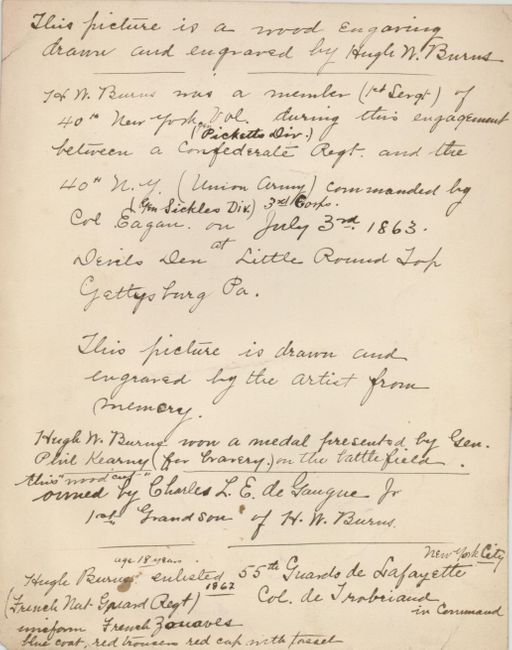 This picture is a wood engaving
drawn and engraved by Hugh W. Burns
H W. Burns was a member (1st Sergt) of
40th New York Vol. during this engagement
(Picketts Div.)
between a Confederate Regt. and the
40th N.Y. (Union Army) commanded by
(Gen Sickles Div) 3rd Corps.
Col Eagan. on July 3rd. 1863.
at
Devils Den Little Round Top
Gettysburg Pa.
This picture is drawn and
engraved by the artist from
memory.
Hugh W. Burns won a medal presented by Gen.
Phil Kearny (for bravery.) on the battlefield.
this wood cut"
owned by Charles L. E. de Gaugue Jr
1st Grandson of H. W. Burns.
New York City
age 18 years
Hugh Burns enlisted 55th Guards de Lafayette
1862
(French Nat Guard Regt) Col. de Trobriand
in Command
uniform French Zouaves
blue coat, red trousers red cap with tassel